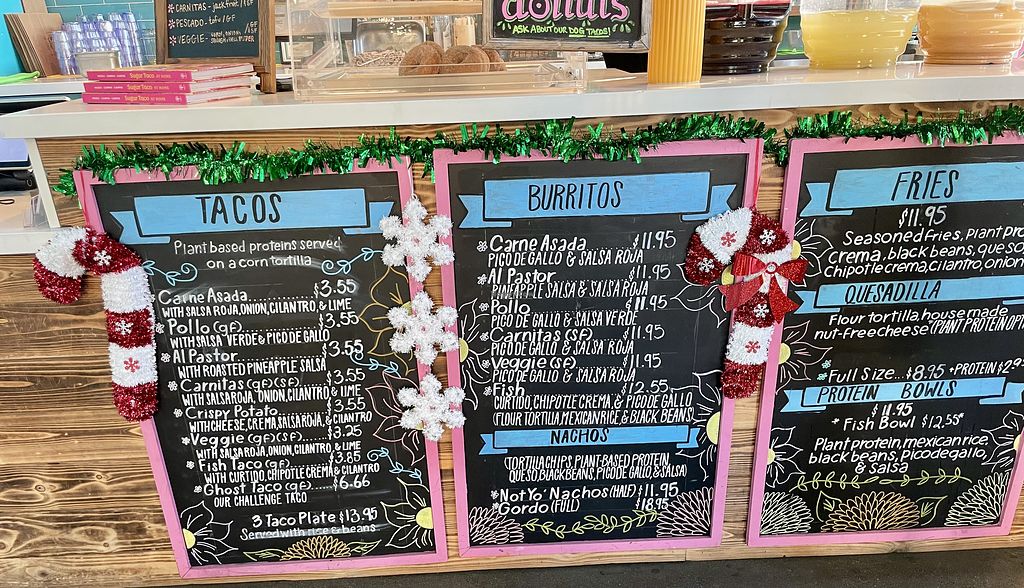 *CARNITAS - jackfruit/GF
*PESCADO - tofu/GF
*VEGGIE -
donuts
*ASK ABOUT OUR DOG TACOS!
Sugar Taco AT HOME
Sugar Taco AT HOME
Sugar Taco AT HOME
TACOS
Plant based proteins served
on a corn tortilla
Carne Asada........$3.55
WITH SALSA ROJA, ONION, CILANTRO, & LIME
Pollo (gf)........$3.55
WITH SALSA VERDE & PICO DE GALLO
Al Pastor........$3.55
WITH ROASTED PINEAPPLE SALSA
Carnitas (gf)(sf)....$3.55
WITH SALSA ROJA, ONION, CILANTRO, & LIME
Crispy Potato........$3.55
WITH CHEESE, CREMA, SALSA ROJA, & CILANTRO
*Veggie (gf)(sf)....$3.25
WITH SALSA ROJA, ONION, CILANTRO, & LIME
*Fish Taco (gf)....$3.85
WITH CURTIDO, CHIPOTLE CREMA & CILANTRO
*Ghost Taco (gf)....$6.66
OUR CHALLENGE TACO
3 Taco Plate $13.95
Served with rice & beans
BURRITOS
*Carne Asada........$11.95
PICO DE GALLO & SALSA ROJA
*Al Pastor........$11.95
PINEAPPLE SALSA & SALSA ROJA
*Pollo........$11.95
PICO DE GALLO & SALSA VERDE
*Carnitas (SF)....$11.95
PICO DE GALLO & SALSA ROJA
*Veggie (SF)....$11.95
PICO DE GALLO & SALSA ROJA
*Fish........$12.55
CURTIDO, CHIPOTLE CREMA, & PICO DE GALLO
(FLOUR TORTILLA, MEXICAN RICE & BLACK BEANS)
NACHOS
(TORTILLA CHIPS, PLANT-BASED PROTEIN,
QUESO, BLACK BEANS, PICO DE GALLO, & SALSA)
*Not Yo' Nachos (HALF) $11.95
*Gordo (FULL) $18.95
FRIES
$11.95
Seasoned fries, plant pro
crema, black beans, queso
chipotle crema, cilantro, onion
QUESADILLA
Flour tortilla, house made
nut-free cheese (PLANT PROTEIN OPT
*Full Size... $8.95 +PROTEIN $2
PROTEIN BOWLS
$11.95
*Fish Bowl $12.55*
Plant protein, mexican rice,
black beans, pico de gallo,
& salsa